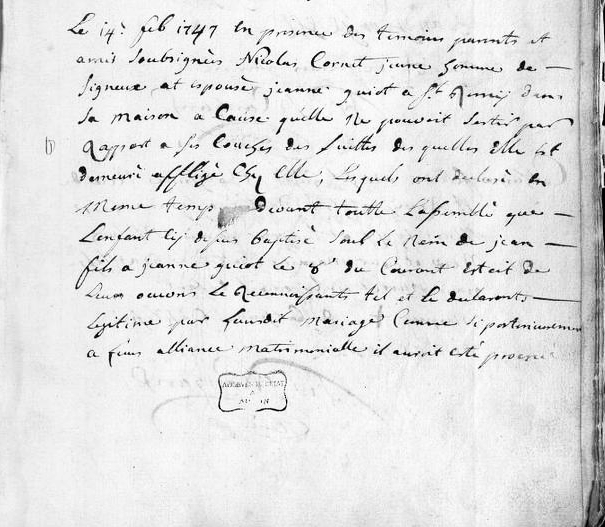 Le 14e feb 1747 En presence des temoins parents et
amis Soubsignés Nicolas Cornet jeune homme de —
Signeux at espousé jeanne guiot a St Remij dans
Sa maison a Cause qu'elle Ne pouvoit Sortir par
Rapport a Ses Couches des Suittes des quelles Elle est
demeuré affligé Chez Elle, Lesquels ont declaré en
Meme temp devant toutte L'assemblé que —
L'enfant Cij dessus baptisé Soub le Nom de jean —
fils a jeanne guiot le 8e du Courant Estoit de
Leurs Le Reconnoissants tel et le declarants —
Legitime par Leurdit Mariage Comme Si posterieurement
a Leurs alliance Matrimonielle il auroit esté procreé
ARCHIVES DE L'ETAT
A
ARLON